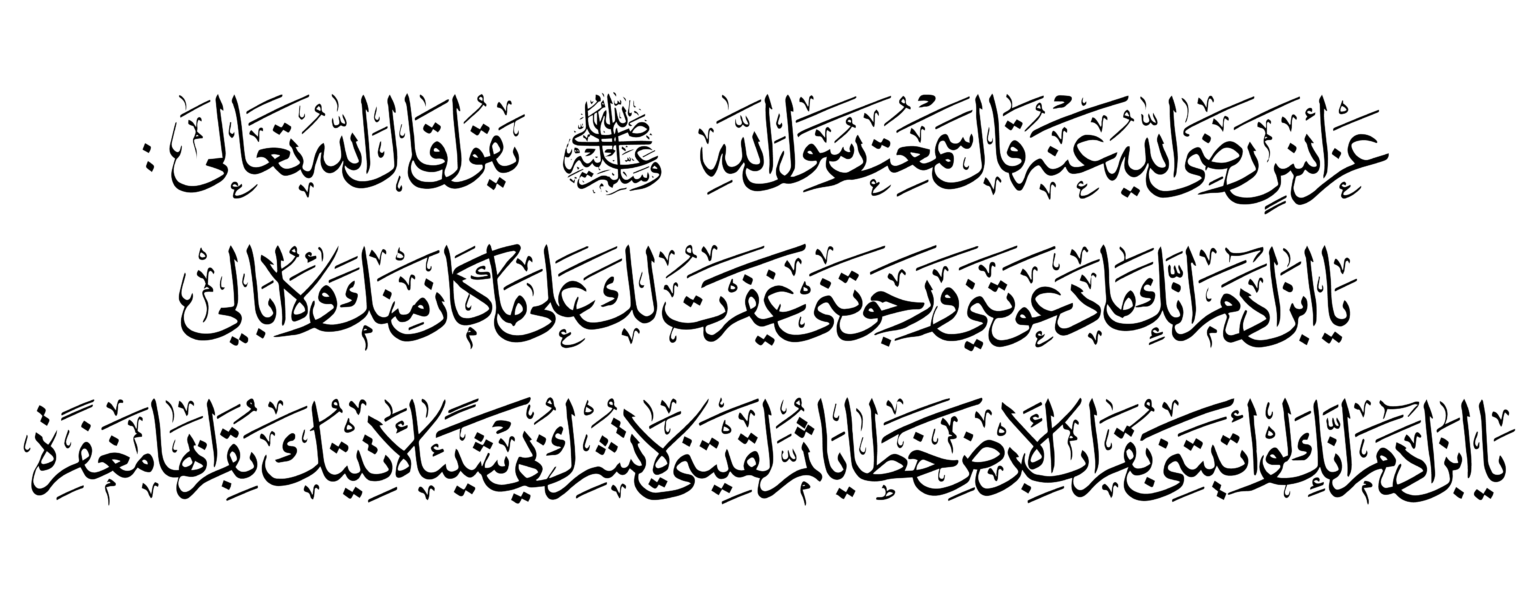 عَنْ أَنَسٍ رَضِيَ اللَّهُ عَنْهُ قَالَ سَمِعْتُ رَسُولَ اللَّهِ صَلَّى اللَّهُ عَلَيْهِ وَسَلَّمَ يَقُولُ قَالَ اللَّهُ تَعَالَى :
يَا ابْنَ آدَمَ إِنَّكَ مَا دَعَوْتَنِي وَرَجَوْتَنِي غَفَرْتُ لَكَ عَلَى مَا كَانَ مِنْكَ وَلَا أُبَالِي
يَا ابْنَ آدَمَ إِنَّكَ لَوْ أَتَيْتَنِي بِقُرَابِ الْأَرْضِ خَطَايَا ثُمَّ لَقِيتَنِي لَا تُشْرِكُ بِي شَيْئًا لَأَتَيْتُكَ بِقُرَابِهَا مَغْفِرَةً